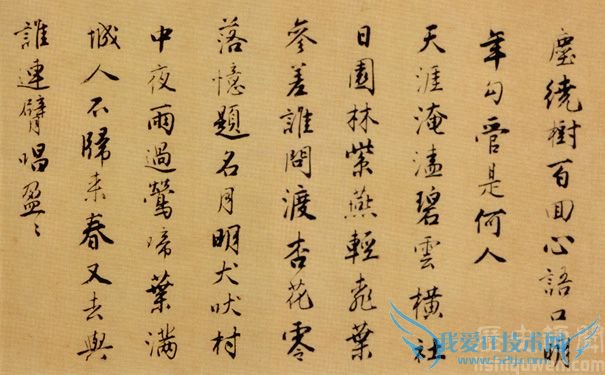 塵繞樹百回心語口明
年勾管是何人
天涯淹溘碧雲橫社
日園林紫燕輕桃葉
參差誰問渡杏花零
落憶題名月明犬吠村
中夜雨過鶯啼葉滿
城人不歸来春又去與
誰連臂唱盈〻
我爱IT技术网